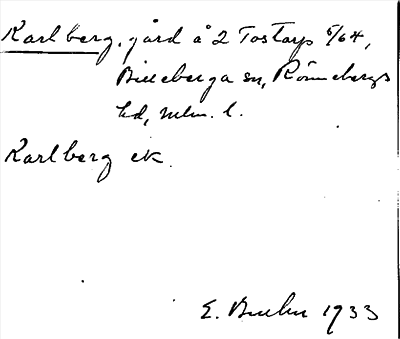 Karlberg, gård å 2 Tostarp 5/64,
Billeberga sn, Rönnebergs
hd, Mlm. l.
Karlberg ek.
E. 1933